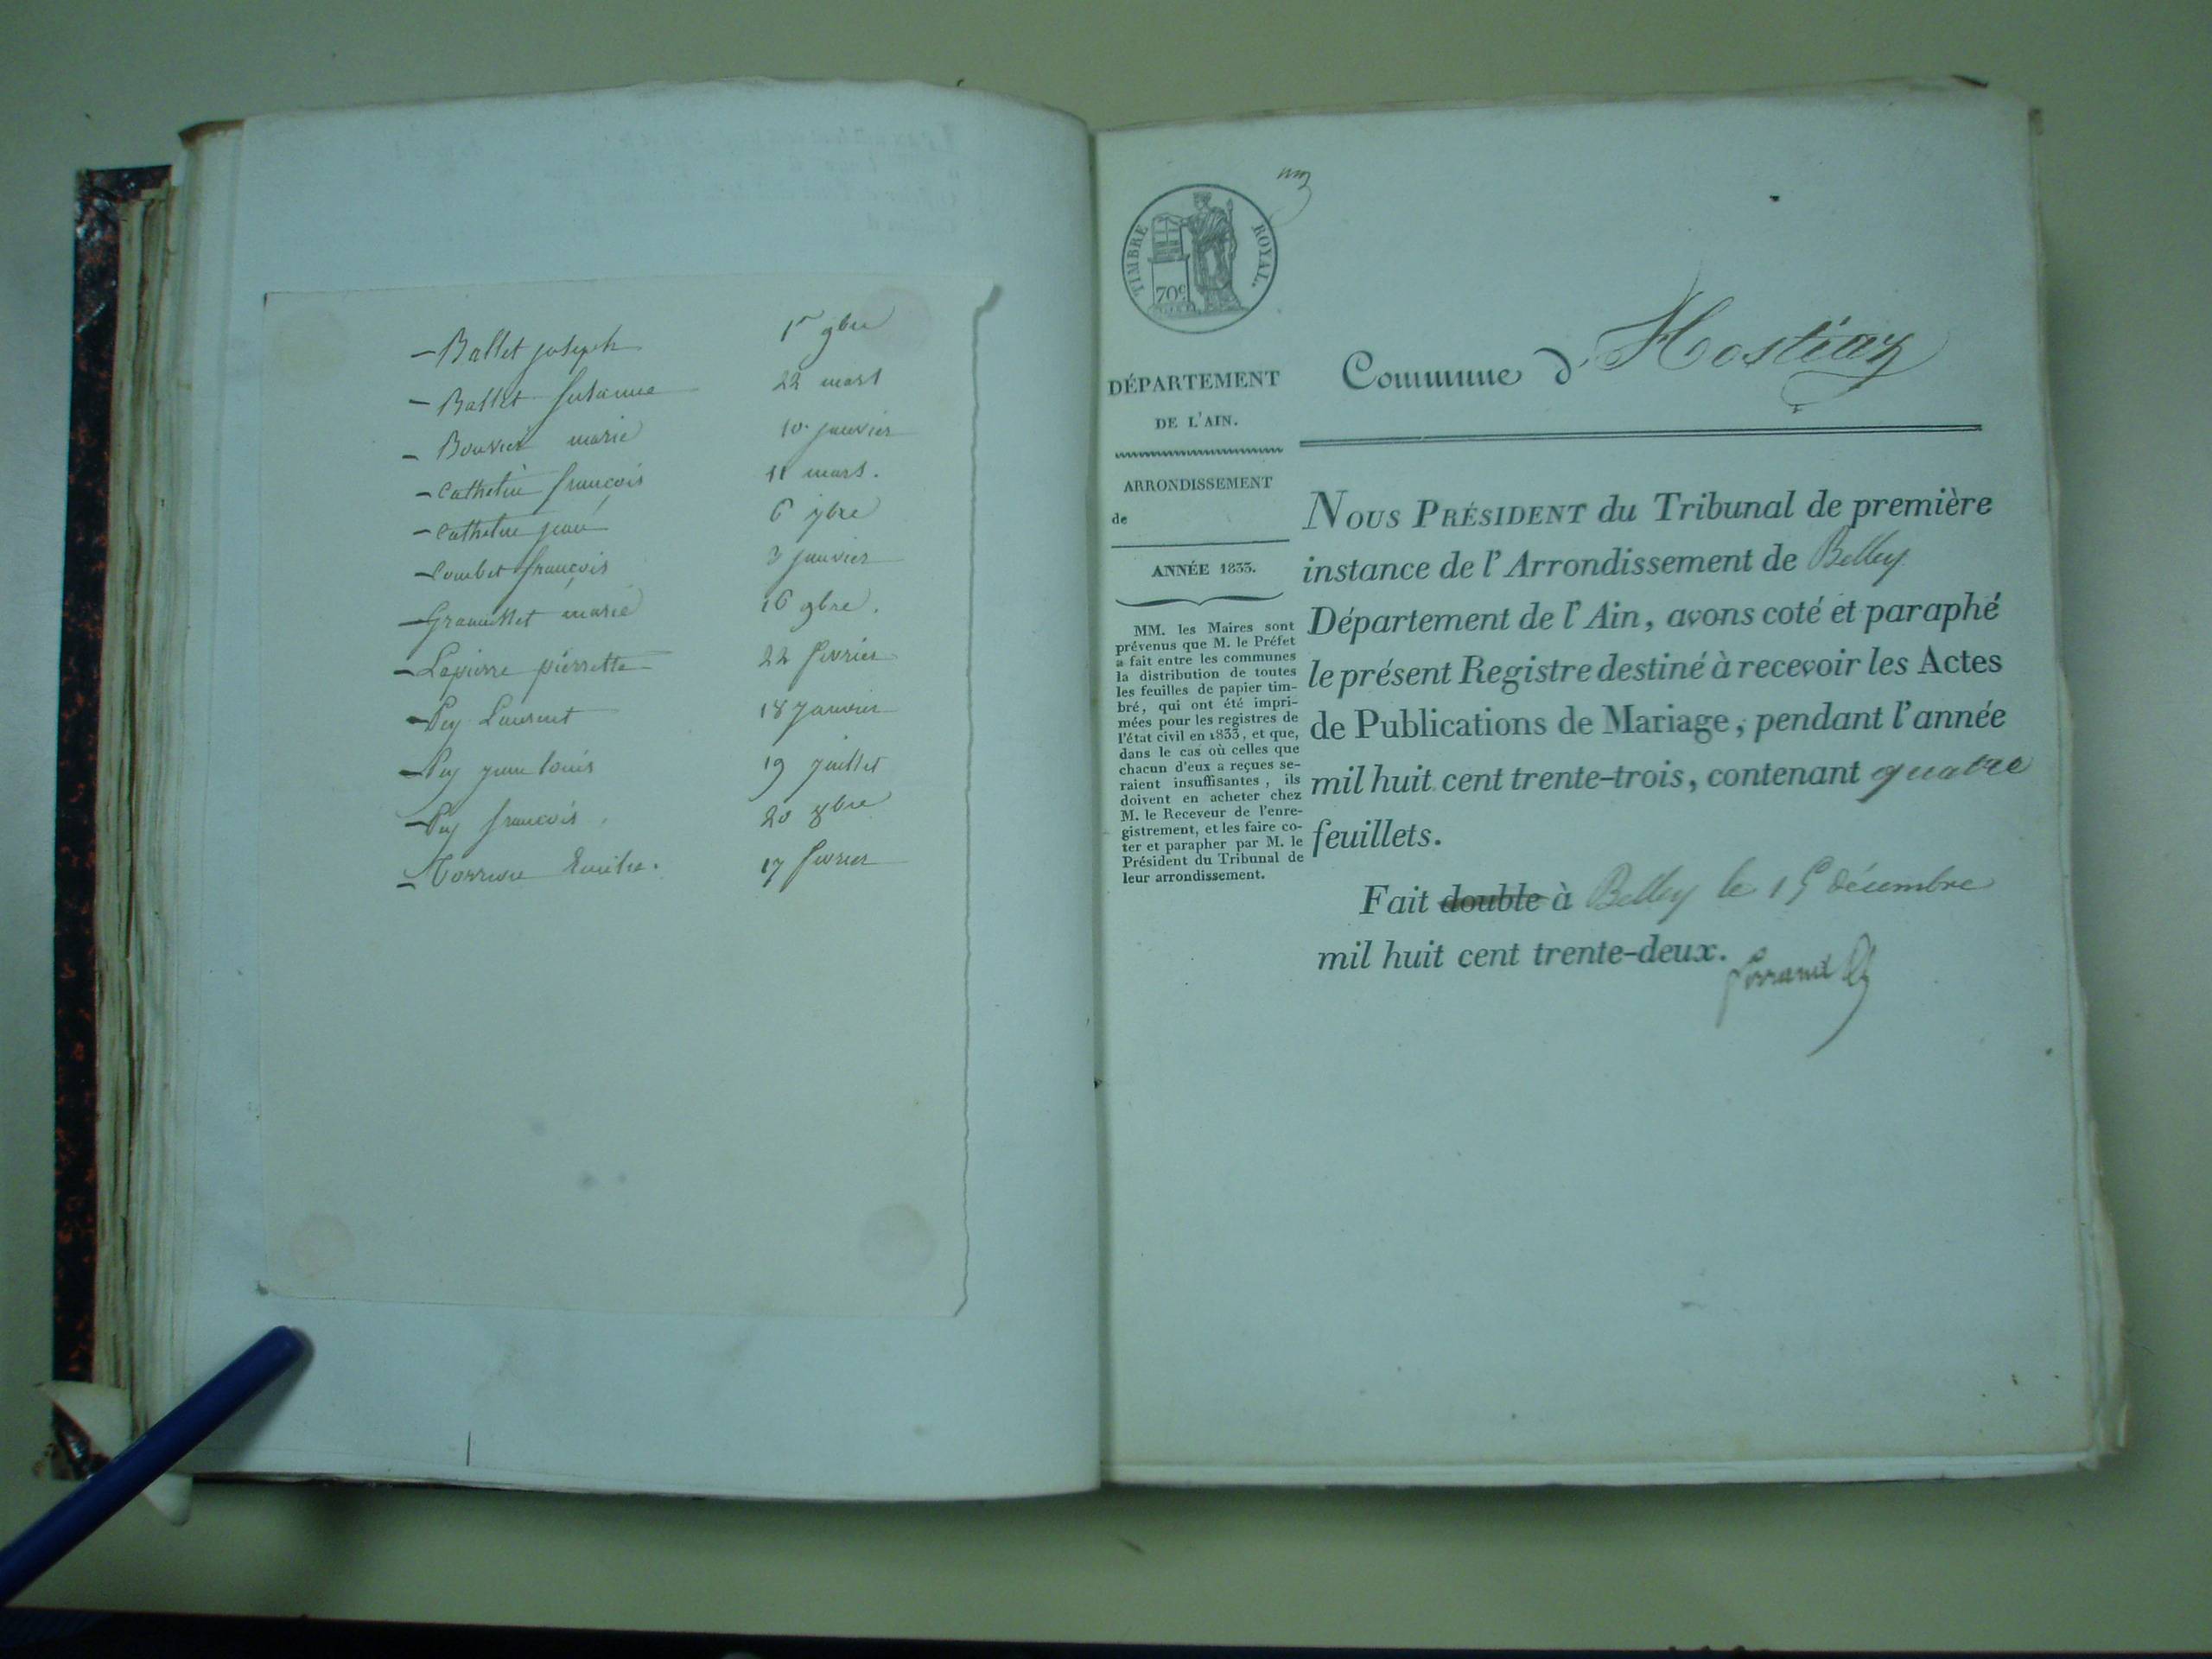 — Ballet joseph 1er 9bre
— Ballet Susanne 22 mars
— Bouvier marie 10 janvier
— Cathelin françois 11 mars.
— Cathelin jean 6 9bre
— Combet françois 3 janvier
— marie 16 9bre.
— Lapierre pierrette 22 fevrier
— Pey Laurent 18 Janvier
— Pey jean louis 19 juillet
— Pey françois 20 8bre
— 17 fevrier
TIMBRE ROYAL.
70c
DÉPARTEMENT
DE L'AIN.
ARRONDISSEMENT
de
ANNÉE 1833.
MM. les Maires sont
prévenus que M. le Préfet
a fait entre les communes
la distribution de toutes
les feuilles de papier tim-
bré, qui ont été impri-
mées pour les registres de
l'état civil en 1833, et que,
dans le cas où celles que
chacun d'eux a reçues se-
raient insuffisantes, ils
doivent en acheter chez
M. le Receveur de l'enre-
gistrement, et les faire co-
ter et parapher par M. le
Président du Tribunal de
leur arrondissement.
Commune d'Hostiaz
NOUS PRÉSIDENT du Tribunal de première
instance de l'Arrondissement de Belley
Département de l'Ain, avons coté et paraphé
le présent Registre destiné à recevoir les Actes
de Publications de Mariage, pendant l'année
mil huit cent trente-trois, contenant quatre
feuillets.
Fait double à Belley le 15 décembre
mil huit cent trente-deux.